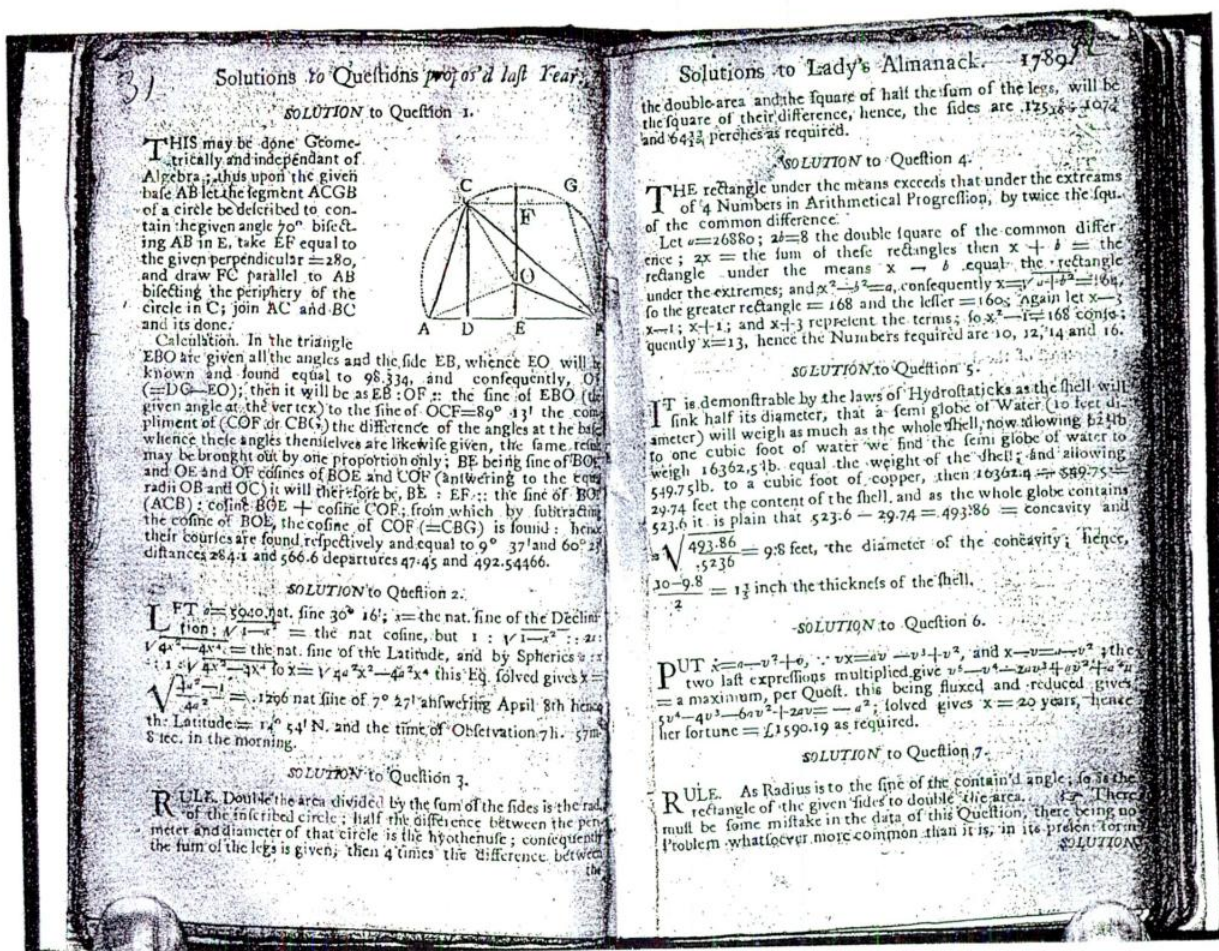 31
Solutions to Queſtions propos'd laſt Year,
SOLUTION to Queſtion 1.
THIS may be done Geome-
trically and independant of
Algebra; thus upon the given
baſe AB let the ſegment ACGB
of a circle be deſcribed to con-
tain the given angle 70° biſect-
ing AB in E, take EF equal to
the given perpendicular =280,
and draw FC parallel to AB
biſecting the periphery of the
circle in C; join AC and BC
and its done.
C G
F
O
A D E
Calculation. In the triangle
EBO are given all the angles and the ſide EB, whence EO will
known and found equal to 98.334, and conſequently,
(=DC—EO); then it will be as EB : OF :: the ſine of EBO
given angle at the vertex) to the ſine of OCF=89° 13' the com-
pliment of (COF or CBG) the difference of the angles at the baſe
whence theſe angles themſelves are likewiſe given, the ſame
may be brought out by one proportion only; BE being ſine of
and OE and OF coſines of BOE and COF (anſwering to the
radii OB and OC) it will therefore be, BE : EF :: the ſine of
(ACB) : coſine BOE + coſine COF; from which by ſubtracting
the coſine of BOE, the coſine of COF (=CBG) is found : hence
their courſes are found reſpectively and equal to 9° 37' and 60°
diſtances 284.1 and 566.6 departures 47.45 and 492.54466.
SOLUTION to Queſtion 2.
LET nat. ſine 30° 16'; x=the nat. ſine of the
tion; √1—x² = the nat coſine, but 1 : √1—x² ::
√4x²—4x⁴ = the nat. ſine of the Latitude, and by Spherics
ſo x=√4a²x²—4a²x⁴ this Eq. ſolved gives x=
= .1296 nat ſine of 7° 27' anſwering April 8th hence
the Latitude = 14° 54' N. and the time of Obſervation 7h. 57m
8 ſec. in the morning.
SOLUTION to Queſtion 3.
RULE. Double the area divided by the ſum of the ſides is the
of the inſcribed circle; half the difference between the
meter and diameter of that circle is the hyothenuſe; conſequently
the ſum of the legs is given, then 4 times the difference between
the
Solutions to Lady's Almanack. 1789
the double area and the ſquare of half the ſum of the legs, will be
the ſquare of their difference, hence, the ſides are
and perches as required.
SOLUTION to Queſtion 4.
THE rectangle under the means exceeds that under the extreams
of 4 Numbers in Arithmetical Progreſſion, by twice the ſqu.
of the common difference.
Let a=26880; 2b=8 the double ſquare of the common differ.
ence; 2x = the ſum of theſe rectangles then x + b = the
rectangle under the means x — b equal the rectangle
under the extremes; and x²—b²=a, conſequently x=√a+b²=164,
ſo the greater rectangle = 168 and the leſſer =160; Again let x—3
x—1; x+1; and x+3 repreſent the terms; ſo x²—1=168 conſe;
quently x=13, hence the Numbers required are 10, 12, 14 and 16.
SOLUTION to Queſtion 5.
IT is demonſtrable by the laws of Hydroſtaticks as the ſhell will
ſink half its diameter, that a ſemi globe of Water (10 feet di-
ameter) will weigh as much as the whole ſhell, now allowing 62½lb
to one cubic foot of water we find the ſemi globe of water to
weigh 16362.5lb. equal the weight of the ſhell; and allowing
549.75lb. to a cubic foot of copper, then 16362.4 ÷ 549.75 =
29.74 feet the content of the ſhell, and as the whole globe contains
523.6 it is plain that 523.6 — 29.74 = 493.86 = concavity and
√493.86/.5236 = 9.8 feet, the diameter of the concavity; hence,
10—9.8/2 = inch the thickneſs of the ſhell.
SOLUTION to Queſtion 6.
PUT x=a—v²+v, ∵ vx=av —v³+v², and x—v=a—v²; the
two laſt expreſſions multiplied give v⁵—v⁴—2av³+av²+a²v
= a maximum, per Queſt. this being fluxed and reduced gives
5v⁴—4v³—6av²+2av=—a²; ſolved gives x=20 years, hence
her fortune = £1590.19 as required.
SOLUTION to Queſtion 7.
RULE. As Radius is to the ſine of the contain'd angle; ſo is the
rectangle of the given ſides to double the area. There
muſt be ſome miſtake in the data of this Queſtion, there being no
Problem whatſoever more common than it is, in its preſent form
SOLUTION